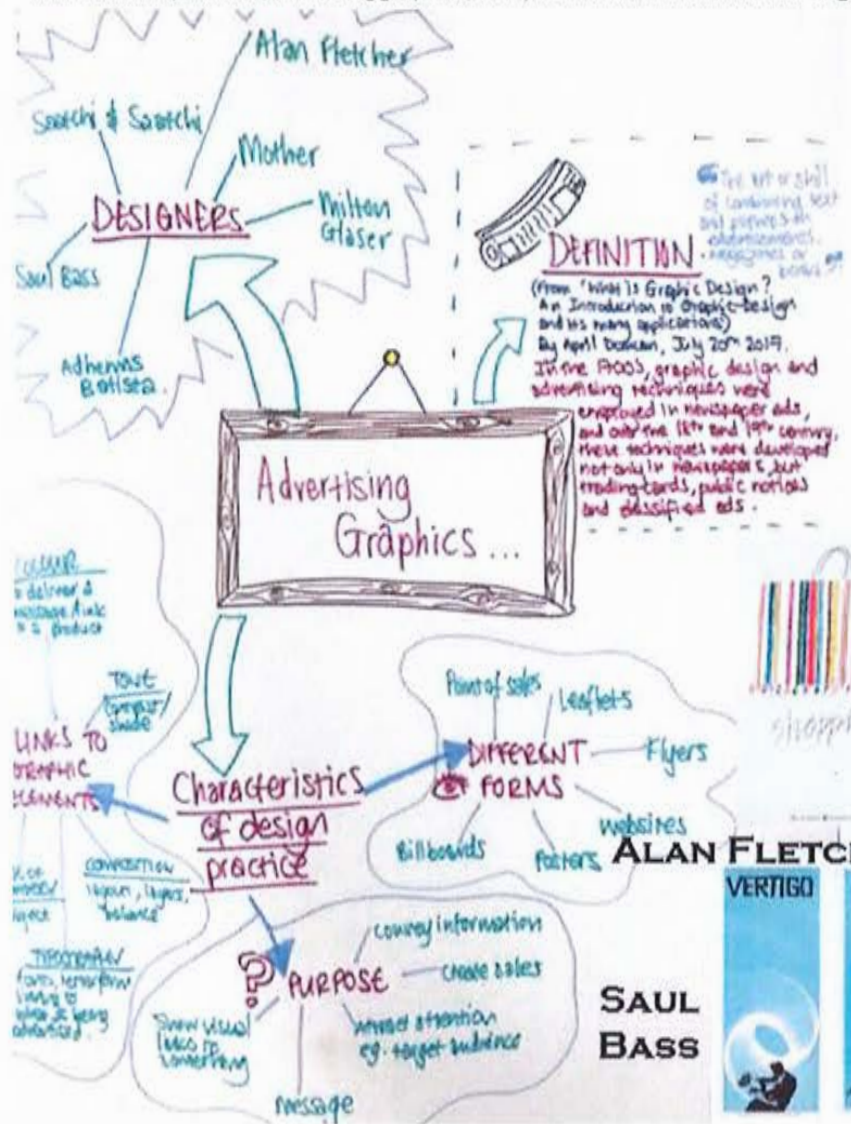 Alan Fletcher
Saatchi & Saatchi
Mother
DESIGNERS
Milton
Glaser
Saul Bass
Adhemas
Batista.
The art or skill
of combining text
and pictures in
advertisements,
magazines or
books
DEFINITION
(From 'What Is Graphic Design?
An Introduction to Graphic Design
and its many applications)
By April
July 20th 2019.
In the 1700s, graphic design and
advertising techniques were
employed in newspaper ads,
and over the 18th and 19th century,
these techniques were developed
not only in newspapers, but
trading cards, public notices
and classified ads.
Advertising
Graphics ...
deliver a
message / link
a product
TONE
LINKS TO
GRAPHIC
ELEMENTS
COMPOSITION
layout, layers,
"balance"
TYPOGRAPHY
fonts, letterform
links to
what is being
advertised.
Characteristics
of design
practice
Point of sales
Leaflets
DIFFERENT
FORMS
Flyers
Websites
Posters
Billboards
PURPOSE
convey information
create sales
attract attention
eg. target audience
message
Show visual
links to
something
shopp
ALAN FLETC
VERTIGO
SAUL
BASS